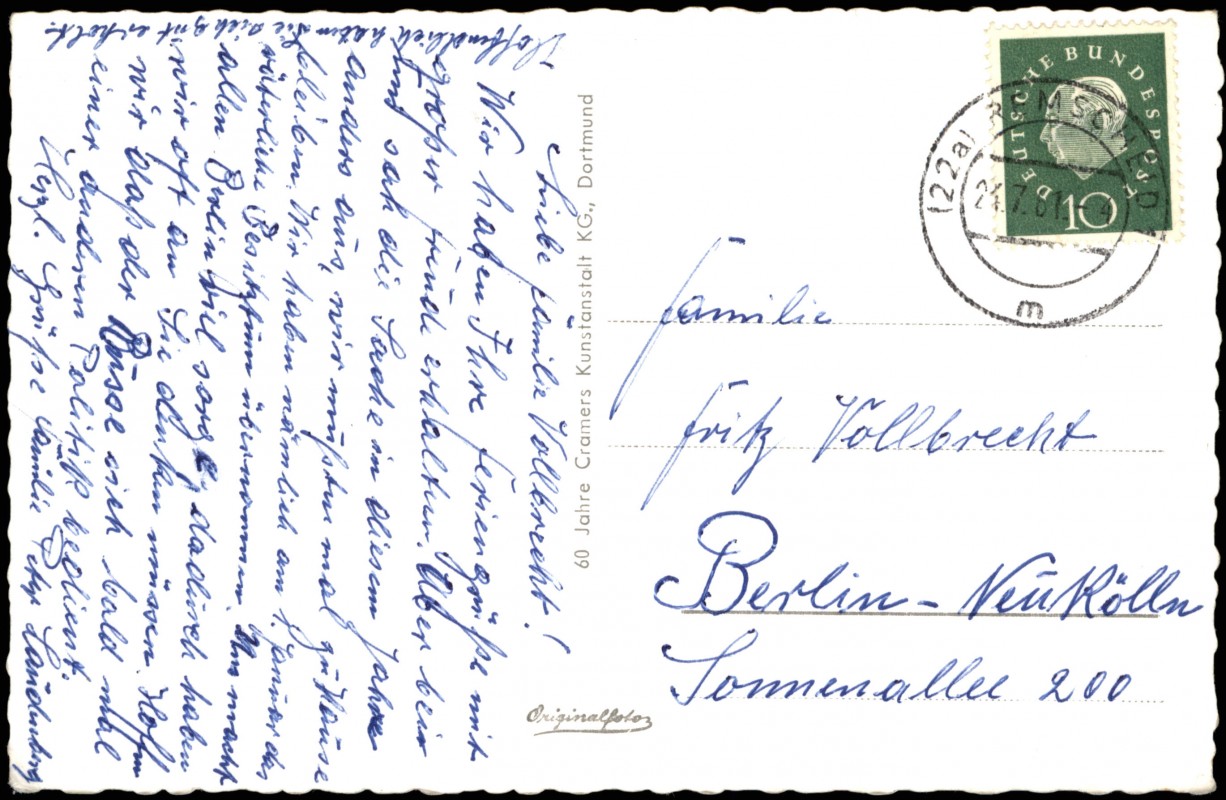 Liebe Familie Vollbrecht!
Wir haben Ihre Feriengrüße mit
großer Freude erhalten. Aber bei
uns sah die Sache in diesem Jahre
anders aus, wir mußten mal zu Hause
bleiben. Wir haben nämlich am 1. Januar das
väterliche Besitztum übernommen. Uns macht
allen Berlin viel Sorge, dadurch haben
wir oft an Sie denken müssen. Hoffen
wir daß der Böse sich bald mal
einer anderen Politik bedient.
Herzl. Grüße Familie
Hoffendlich haben Sie sich gut erholt.
60 Jahre Cramers Kunstanstalt KG., Dortmund
Originalfoto
DEUTSCHE BUNDESPOST
10
(22a) REMSCHEID
24.7.61 - 4
m
Familie
Fritz Vollbrecht
Berlin - Neukölln
Sonnenallee 200